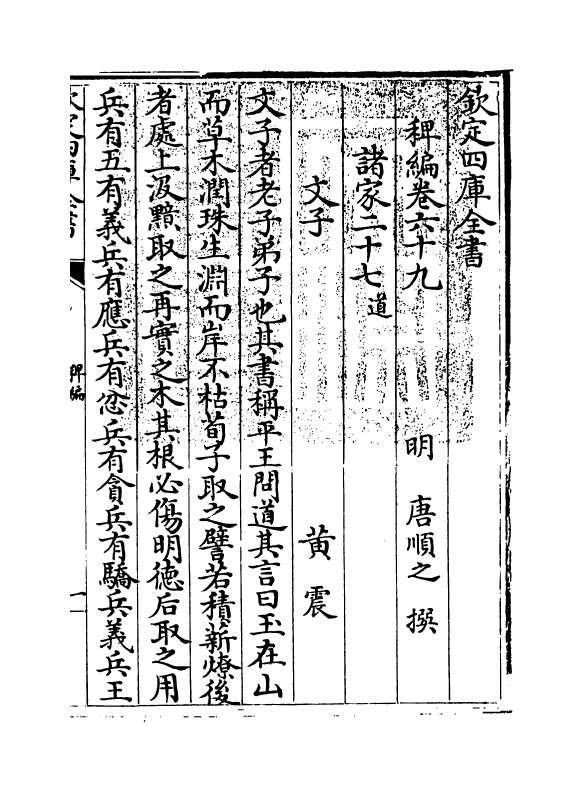 欽定四庫全書
稗編卷六十九　明　唐順之　撰
諸家二十七道
文子　黄震
文子者老子弟子也其書稱平王問道其言曰玉在山
而草木潤珠生淵而岸不枯荀子取之譬若積薪燎後
者處上汲黯取之再實之木其根必傷明徳后取之用
兵有五有義兵有應兵有忿兵有貪兵有驕兵義兵王
欽定四庫全書
稗編
一